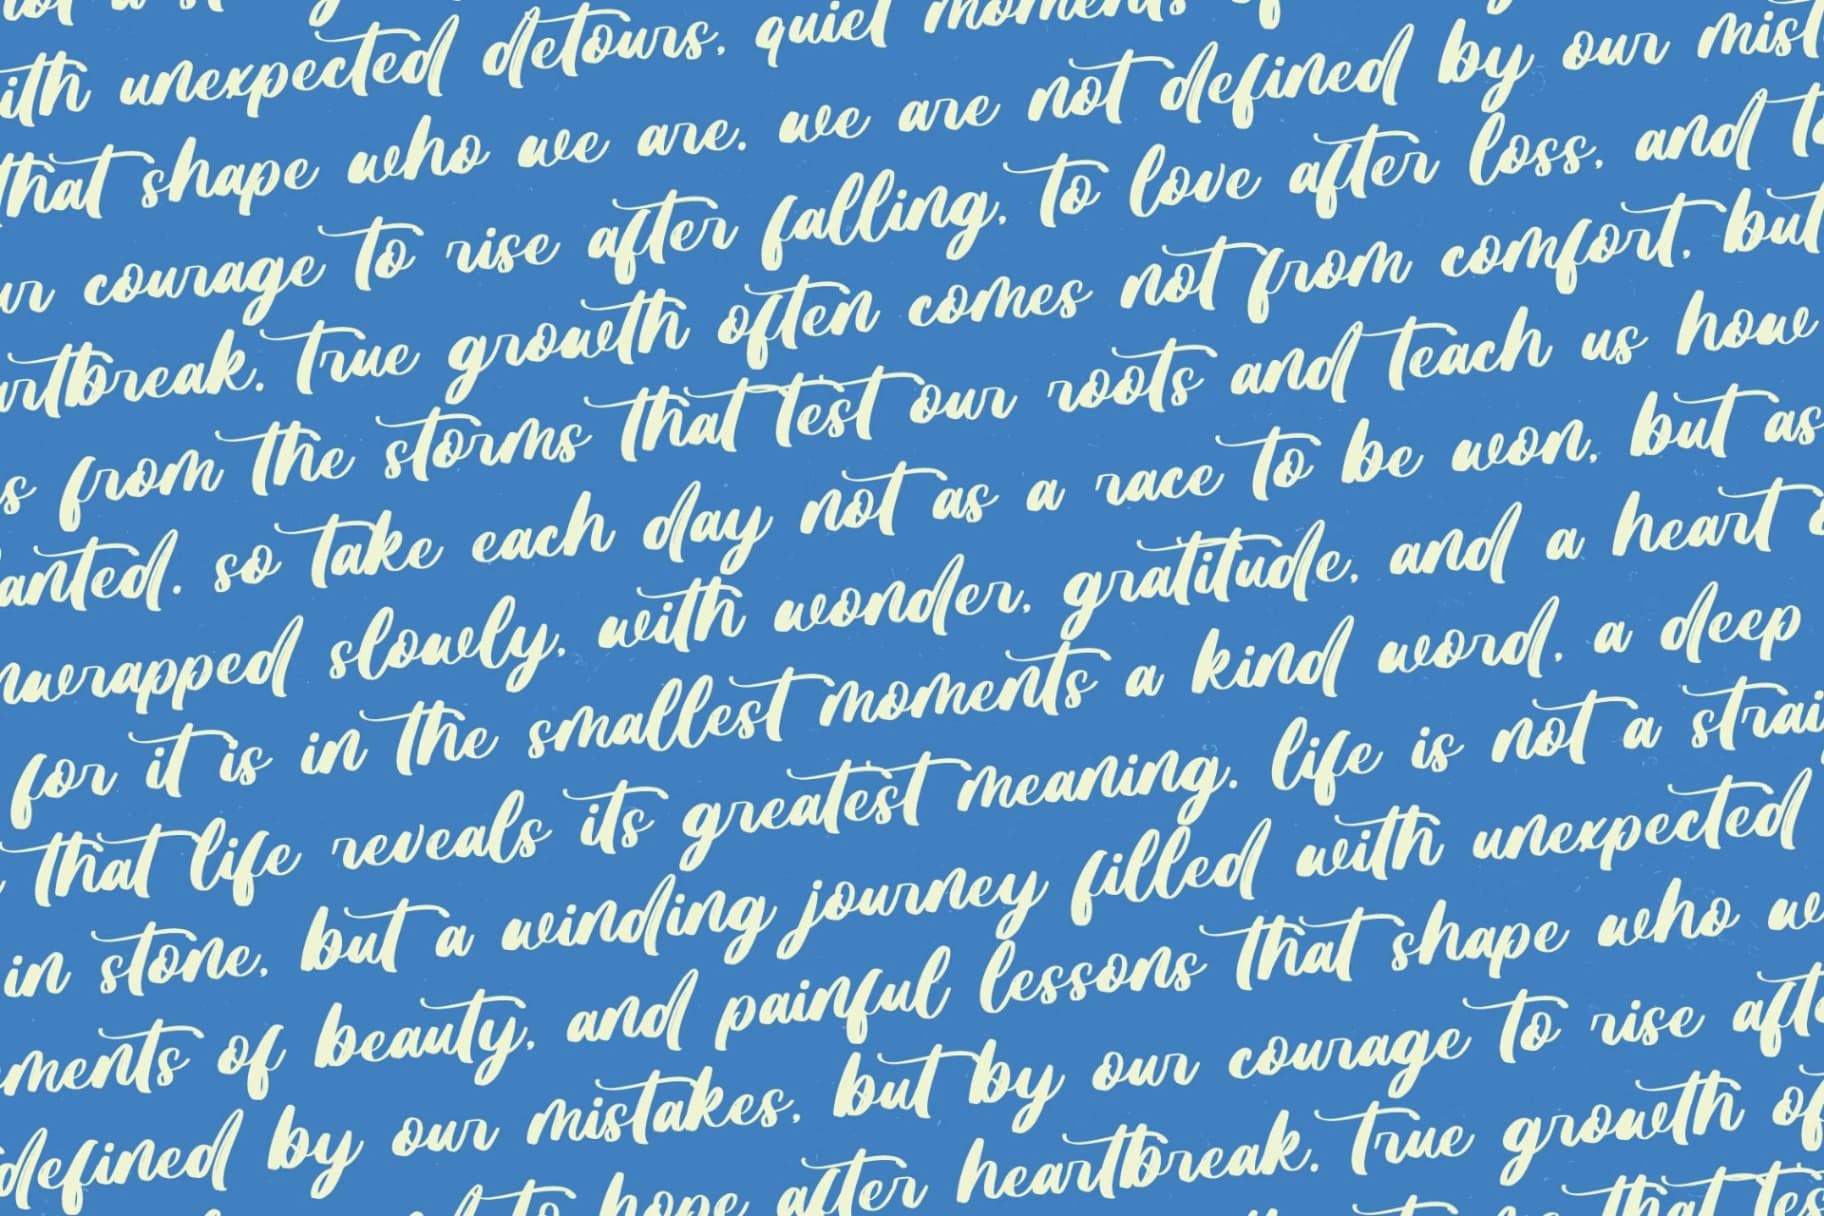 with unexpected detours, quiet moments
that shape who we are. we are not defined by our
courage to rise after falling, to love after loss, and
heartbreak. True growth often comes not from comfort, but
from the storms that test our roots and teach us how
so take each day not as a race to be won, but as
unwrapped slowly, with wonder, gratitude, and a heart
for it is in the smallest moments a kind word, a deep
that life reveals its greatest meaning. life is not a
in stone, but a winding journey filled with unexpected
of beauty, and painful lessons that shape who
defined by our mistakes, but by our courage to rise
hope after heartbreak. True growth
that